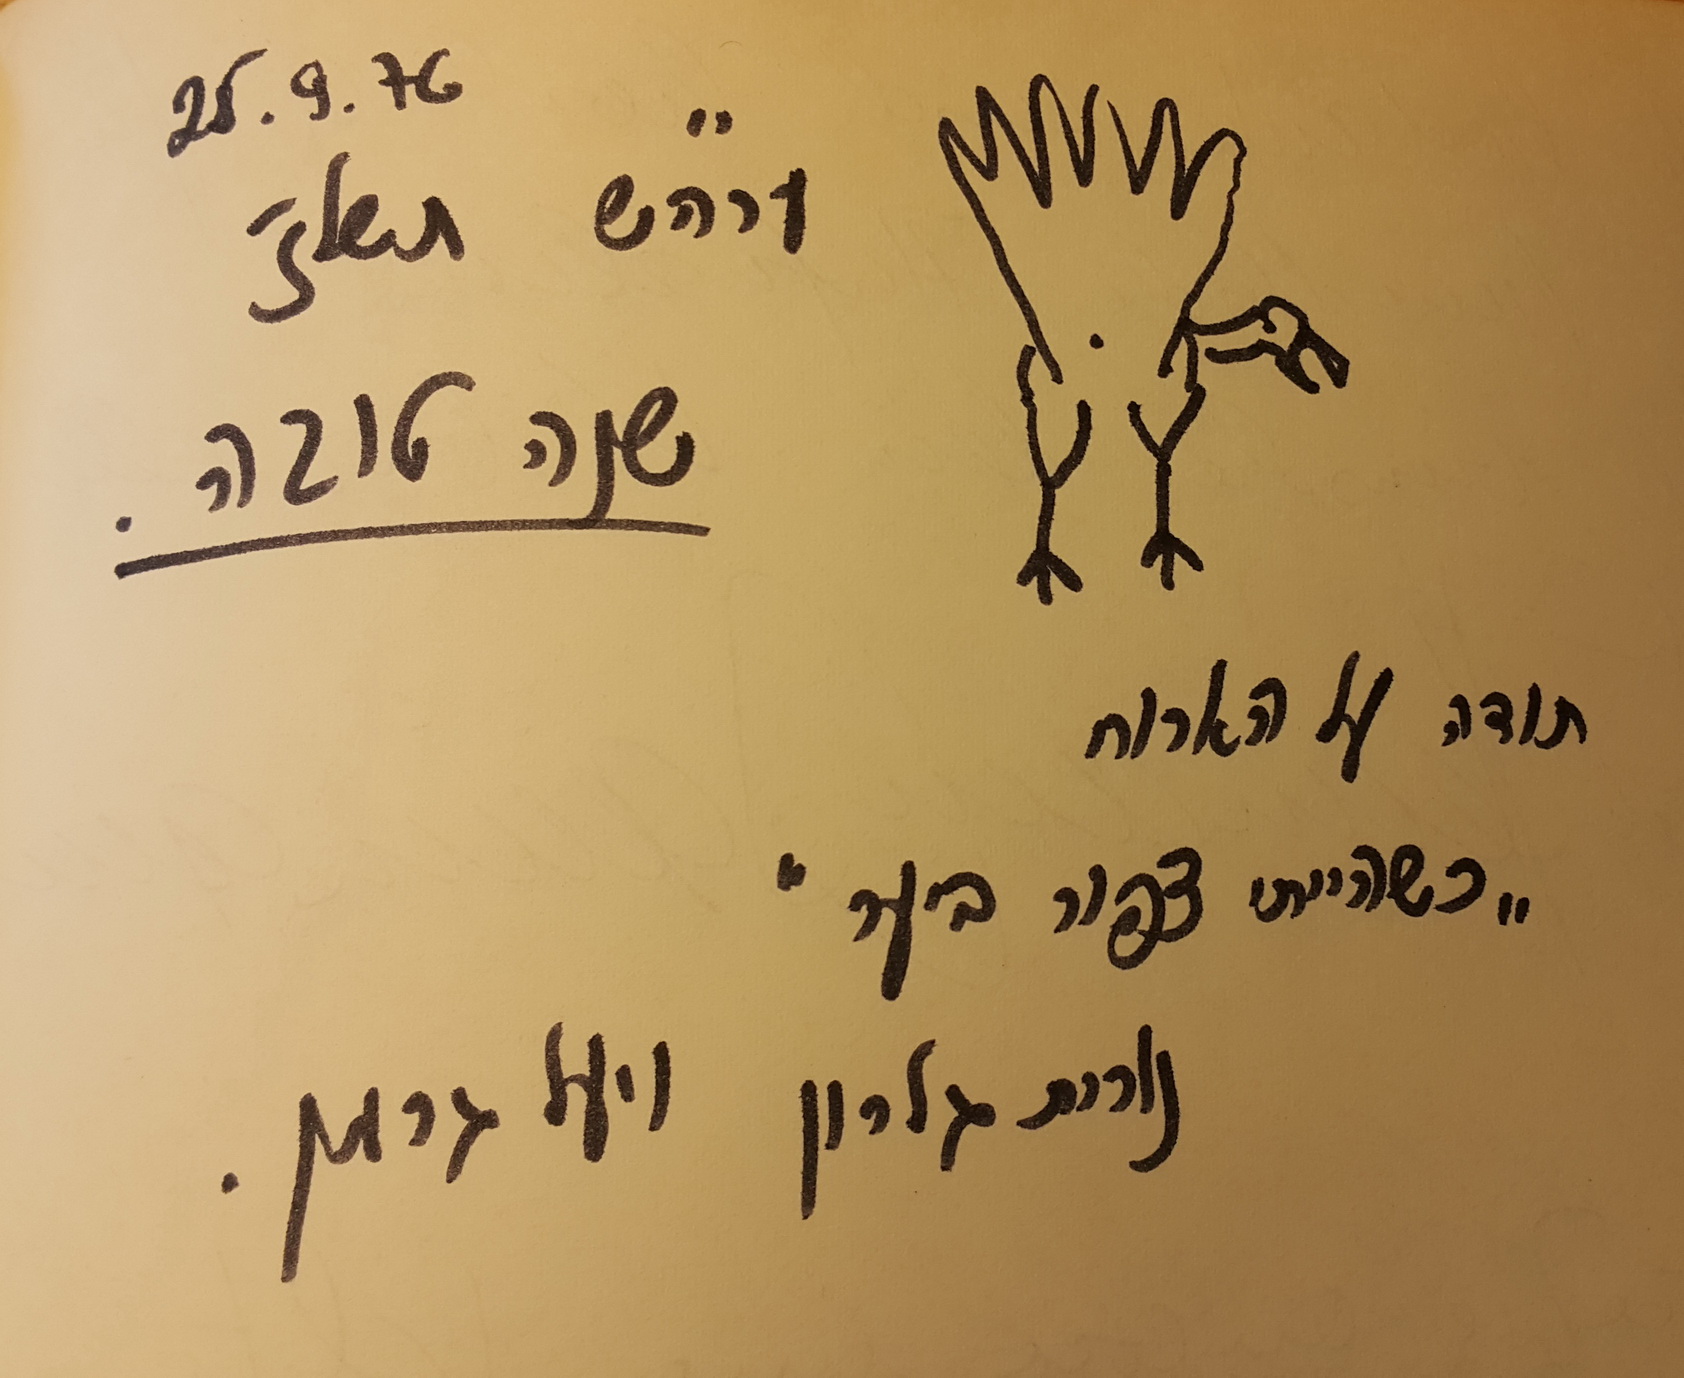 25.9.76
תשל״ז
שנה טובה.
תודה על הארוח
„כשהייתי צפור ביער"
נורית גלרון ויעל גרמן.